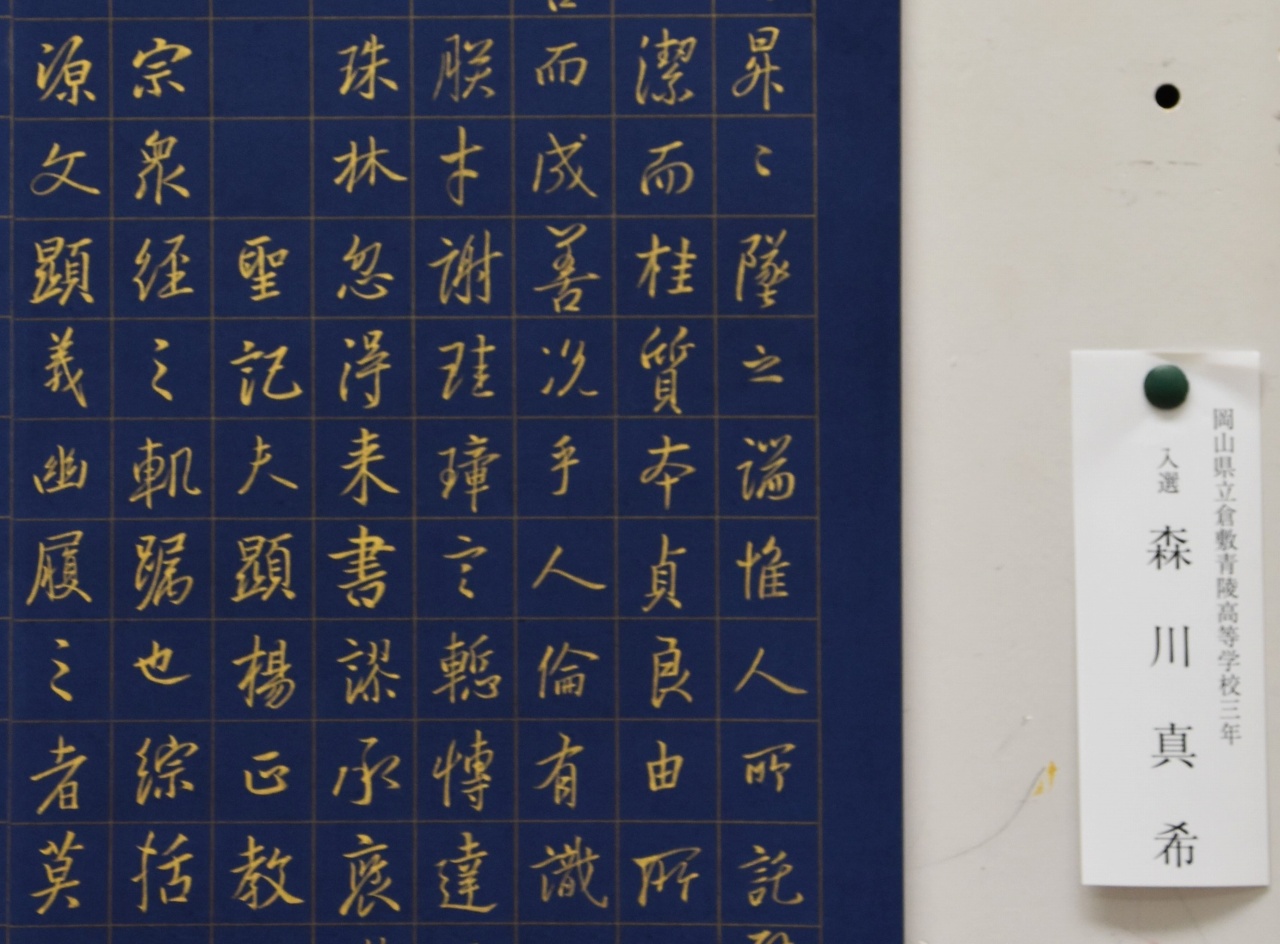 昇〻墜之端惟人所託
潔而桂質本貞良由所
而成善况乎人倫有識
朕才謝珪璋言慙博達
珠林忽得来書謬承褒
聖記夫顕楊正教
宗衆経之軌躅也綜括
源文顕義幽履之者莫
岡山県立倉敷青陵高等学校三年
入選 森川真希